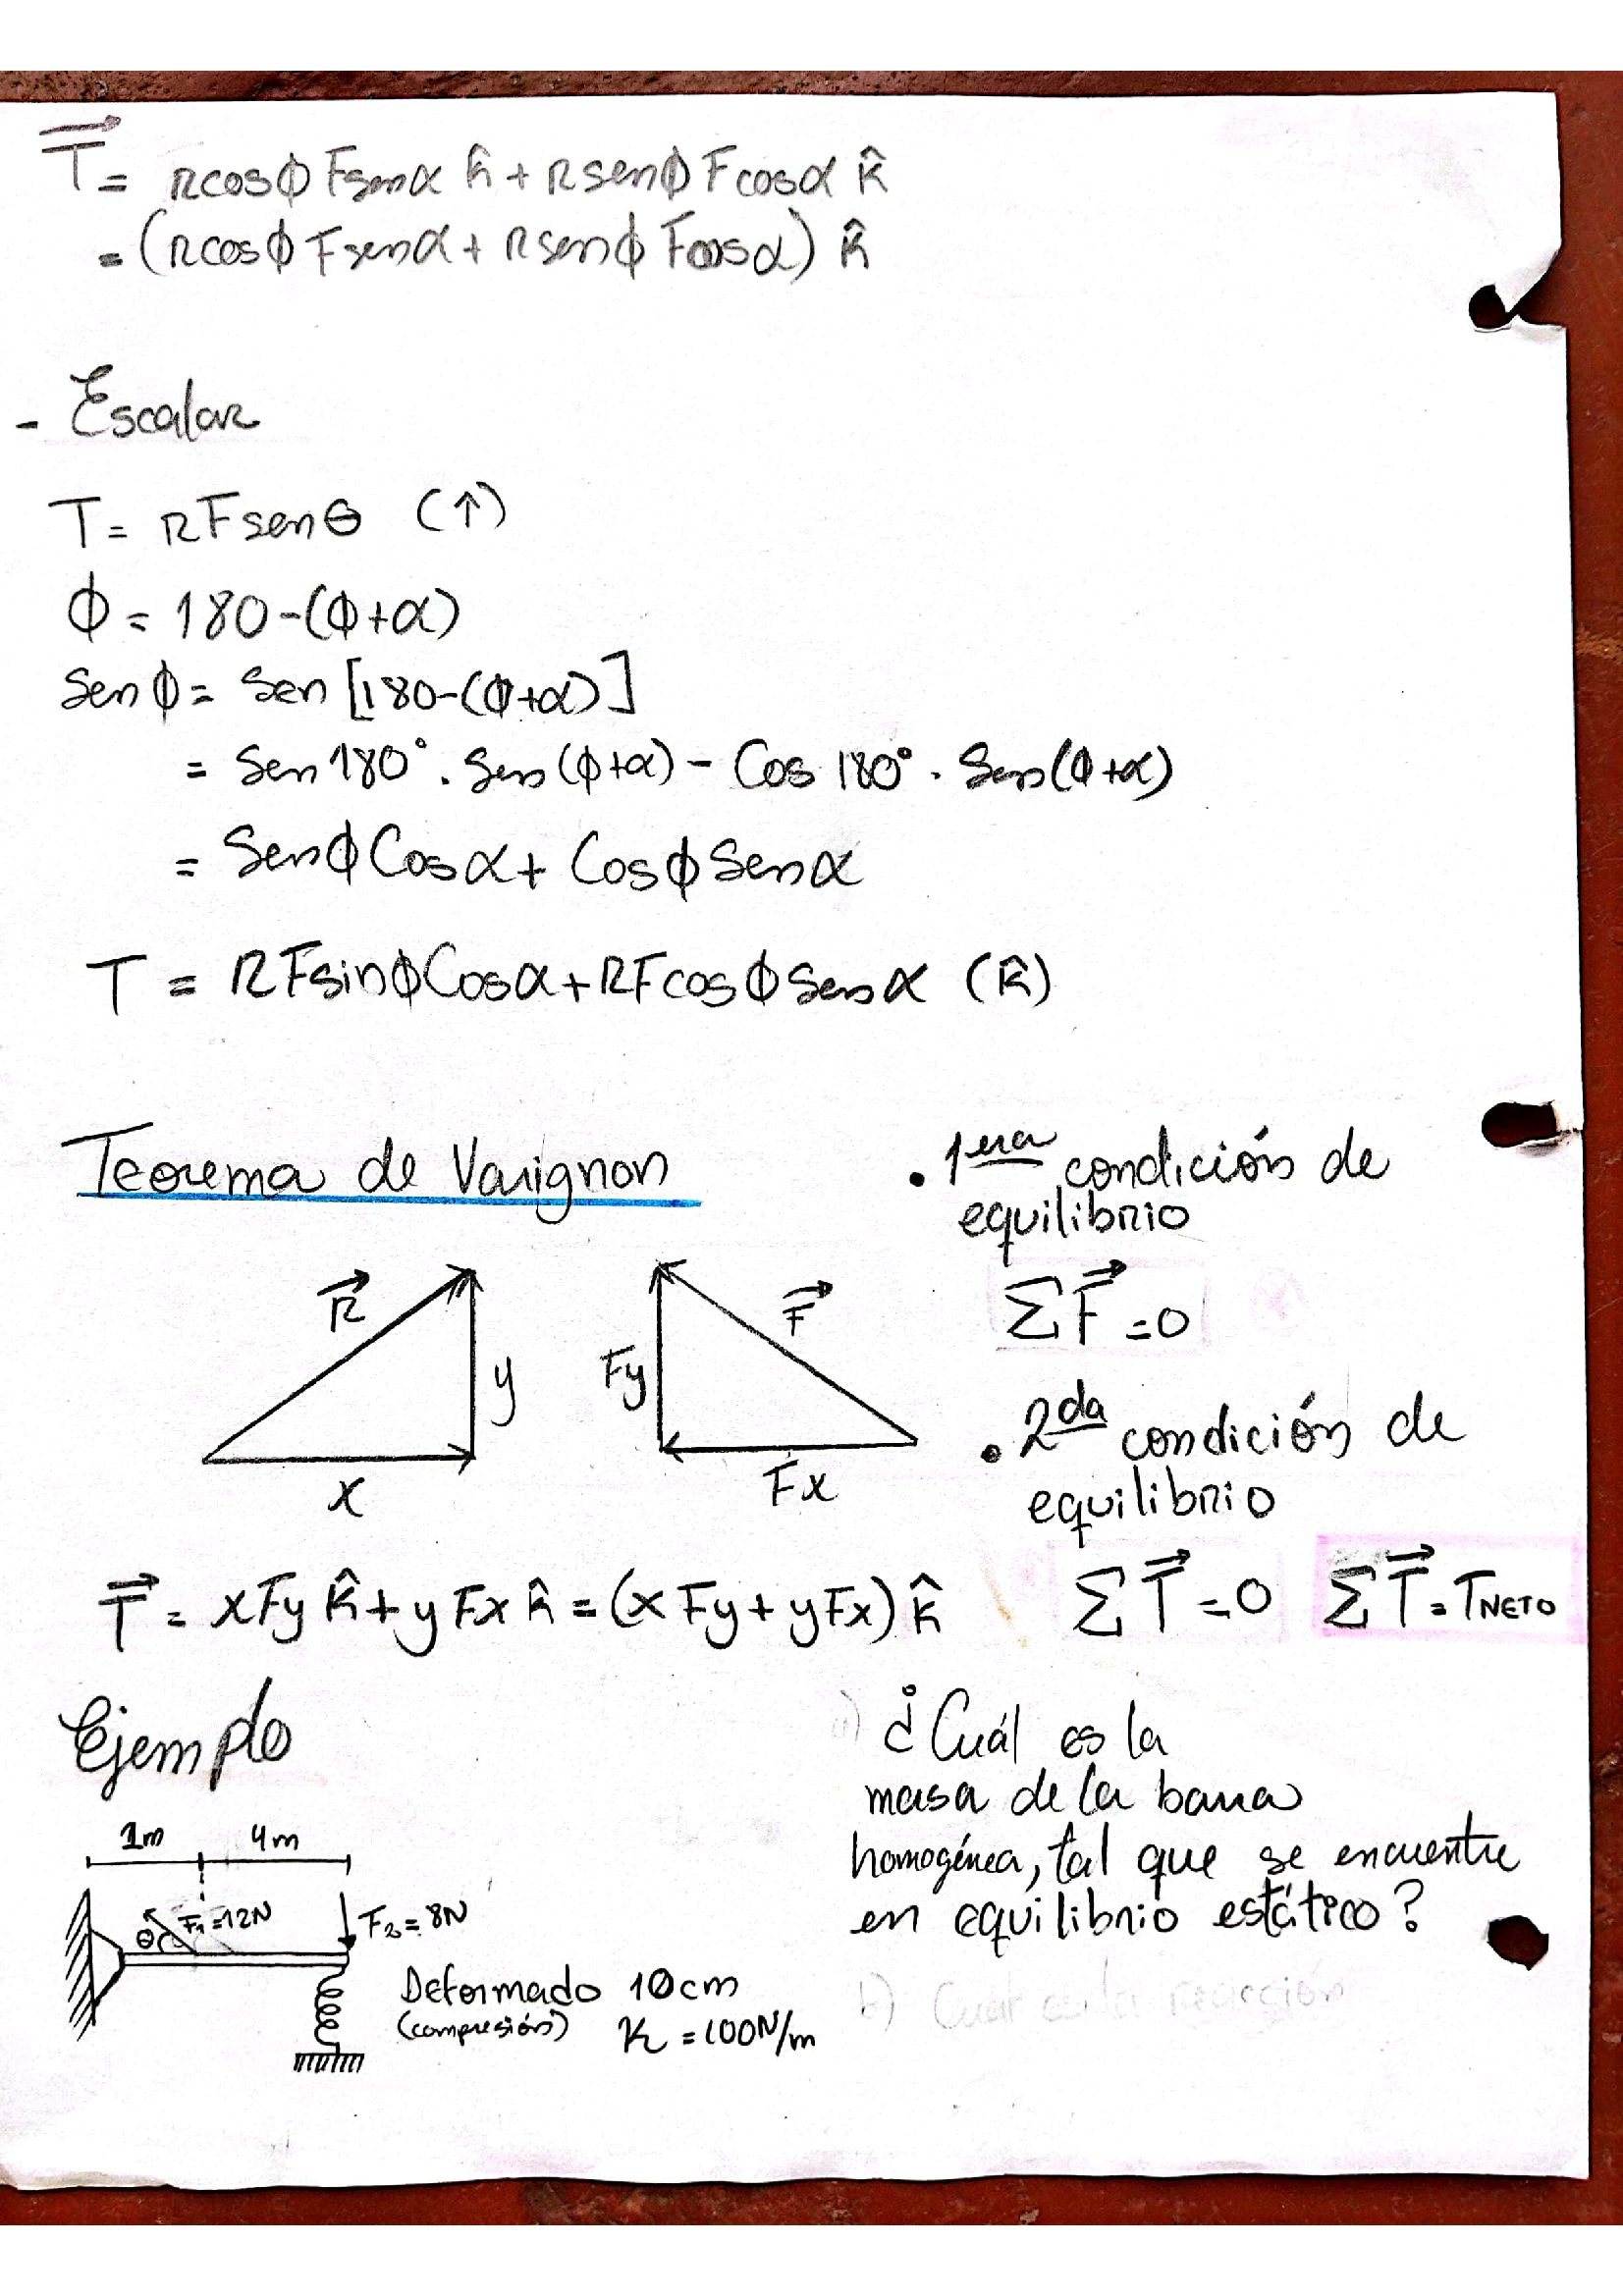 T = Rcosϕ Fsenα k̂ + Rsenϕ Fcosα k̂
= (Rcosϕ Fsenα + Rsenϕ Fcosα) k̂
- Escalar
T = RFsenθ (↑)
ϕ = 180-(ϕ+α)
Senϕ = Sen [180-(ϕ+α)]
= Sen 180° . Sen (ϕ+α) - Cos 180° . Sen (ϕ+α)
= SenϕCosα + CosϕSenα
T = RFsinϕCosα + RFcosϕSenα (k̂)
Teorema de Varignon
R y x
F Fy Fx
T = xFy k̂ + y Fx k̂ = (x Fy + yFx) k̂
. 1era condición de
equilibrio
ΣF = 0
. 2da condición de
equilibrio
ΣT = 0 ΣT = TNETO
Ejemplo
1m 4m
θ F1=12N F2=8N
Deformado 10cm
(compresión) K = 100N/m
a) ¿Cuál es la
masa de la barra
homogénea, tal que se encuentre
en equilibrio estático?
b) Cual es la reacción